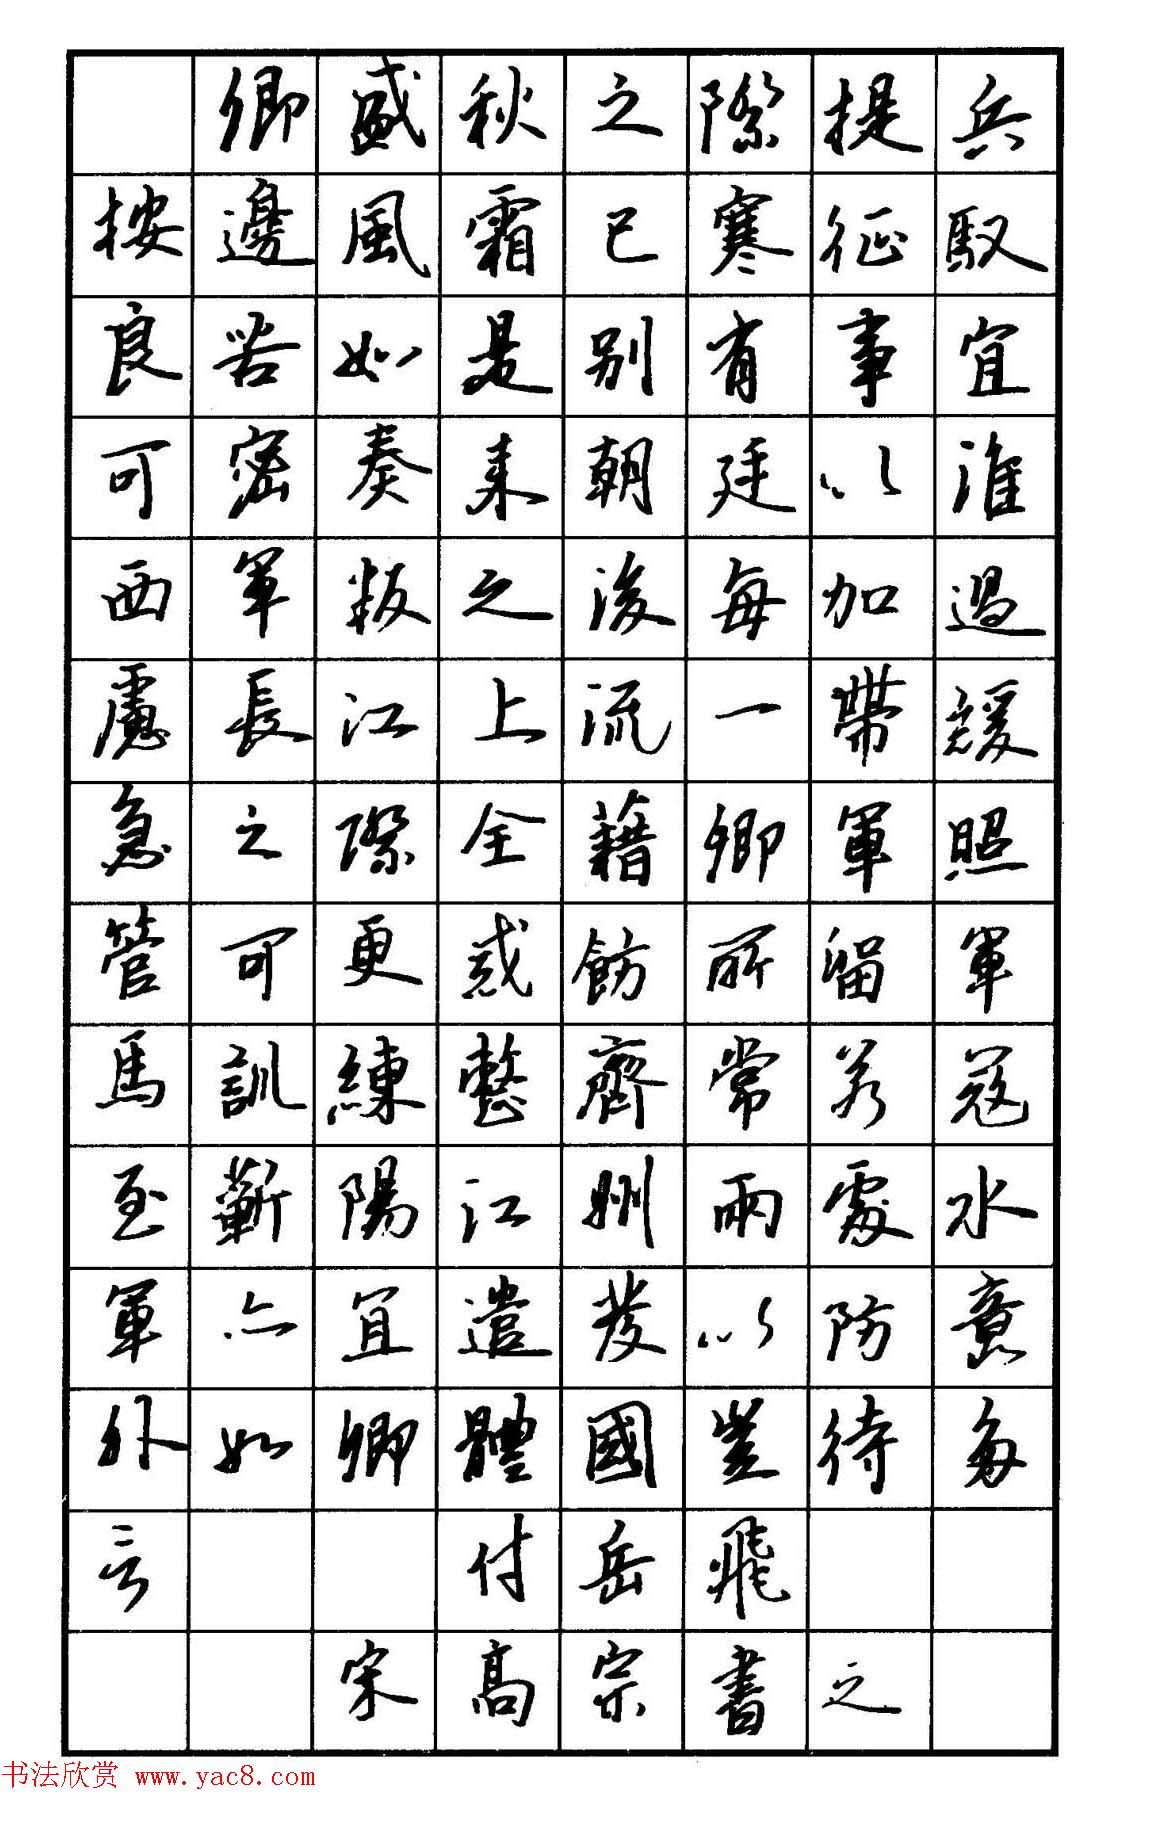 卿盛秋之際提兵
按邊風霜已寒征馭
良苦如是別有事宜
可密奏來朝廷以淮
西軍叛之後每加過
慮長江上流一帶緩
急之際全藉卿軍照
管可更戒飭所留軍
馬訓練整齊常若寇
至蘄陽江州兩處水
軍亦宜遣發以防意
外如卿體國豈待多
言 付岳飛
宋高宗書之
书法欣赏 www.yac8.com